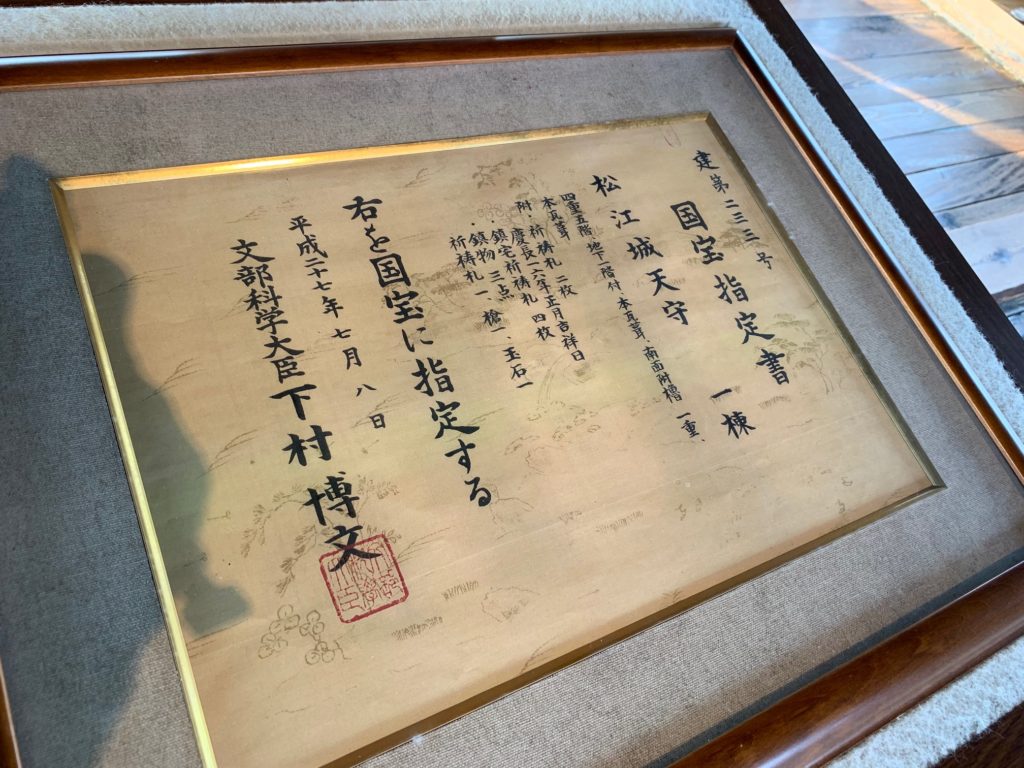 建第二三三号
国宝指定書
松江城天守 一棟
四重五階地下一階付、本瓦葺、南面附櫓 一重、
本瓦葺
附、祈祷札 二枚
慶長十六年正月吉祥日
・鎮宅祈祷札 四枚
・鎮物 三点
祈祷札一、槍一、玉石一
右を国宝に指定する
平成二十七年七月八日
文部科学大臣 下村博文